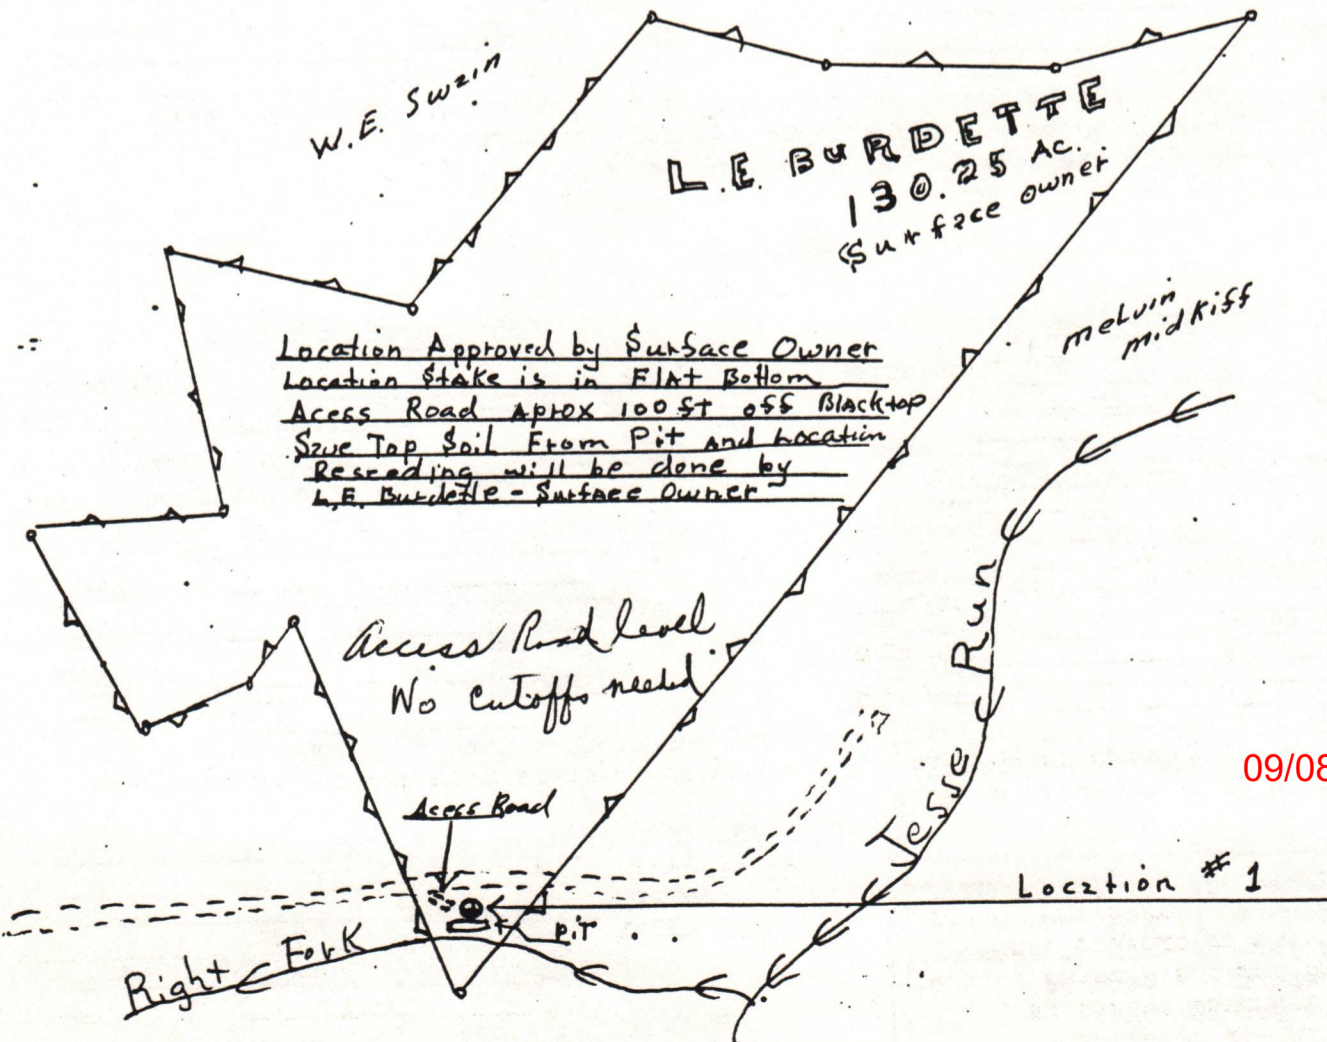 W.E. Swain
L.E. BURDETTE
130.25 Ac.
Surface owner
melvin
midkiff
Location Approved by Surface Owner
Location Stake is in Flat Bottom
Acess Road Aprox 100 ft off Blacktop
Save Top Soil From Pit and Location
Reseeding will be done by
L.E. Burdette - Surface Owner
Access Road level
No cutoffs needed
Jesse Run
09/08
Acess Road
Location # 1
Pit
Right Fork